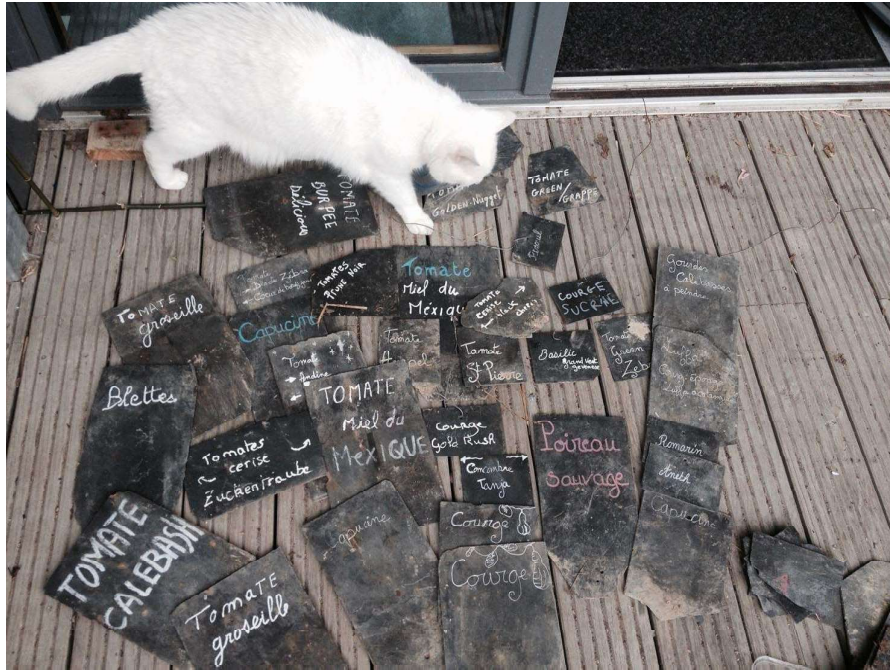 TOMATE
BURPEE
délicious
GOLDEN Nugget
TOMATE
GREEN/
GRAPPE
Tomate
Zébra
TOMATES
PRUNE NOIR
Tomate
Miel du
Mexiqu
TOMATE
CERISE
Black
COURGE
SUCRINE
Gourdes
Calebasses
à peindre
TOMATE
groseille
Capucine
Tomate
Andine
Tomate
Tomate
St Pierre
Basilic
grand vert
genovese
Tomate
Green
Zeb
Blettes
TOMATE
Miel du
MEXIQUE
Tomates
cerise
Zuckentraube
Courge
Gold Rush
Concombre
Tanja
Poireau
sauvage
Romarin
Aneth
Capucine
Capucine
Courge
Courge
TOMATE
CALEBASH
Tomate
groseille